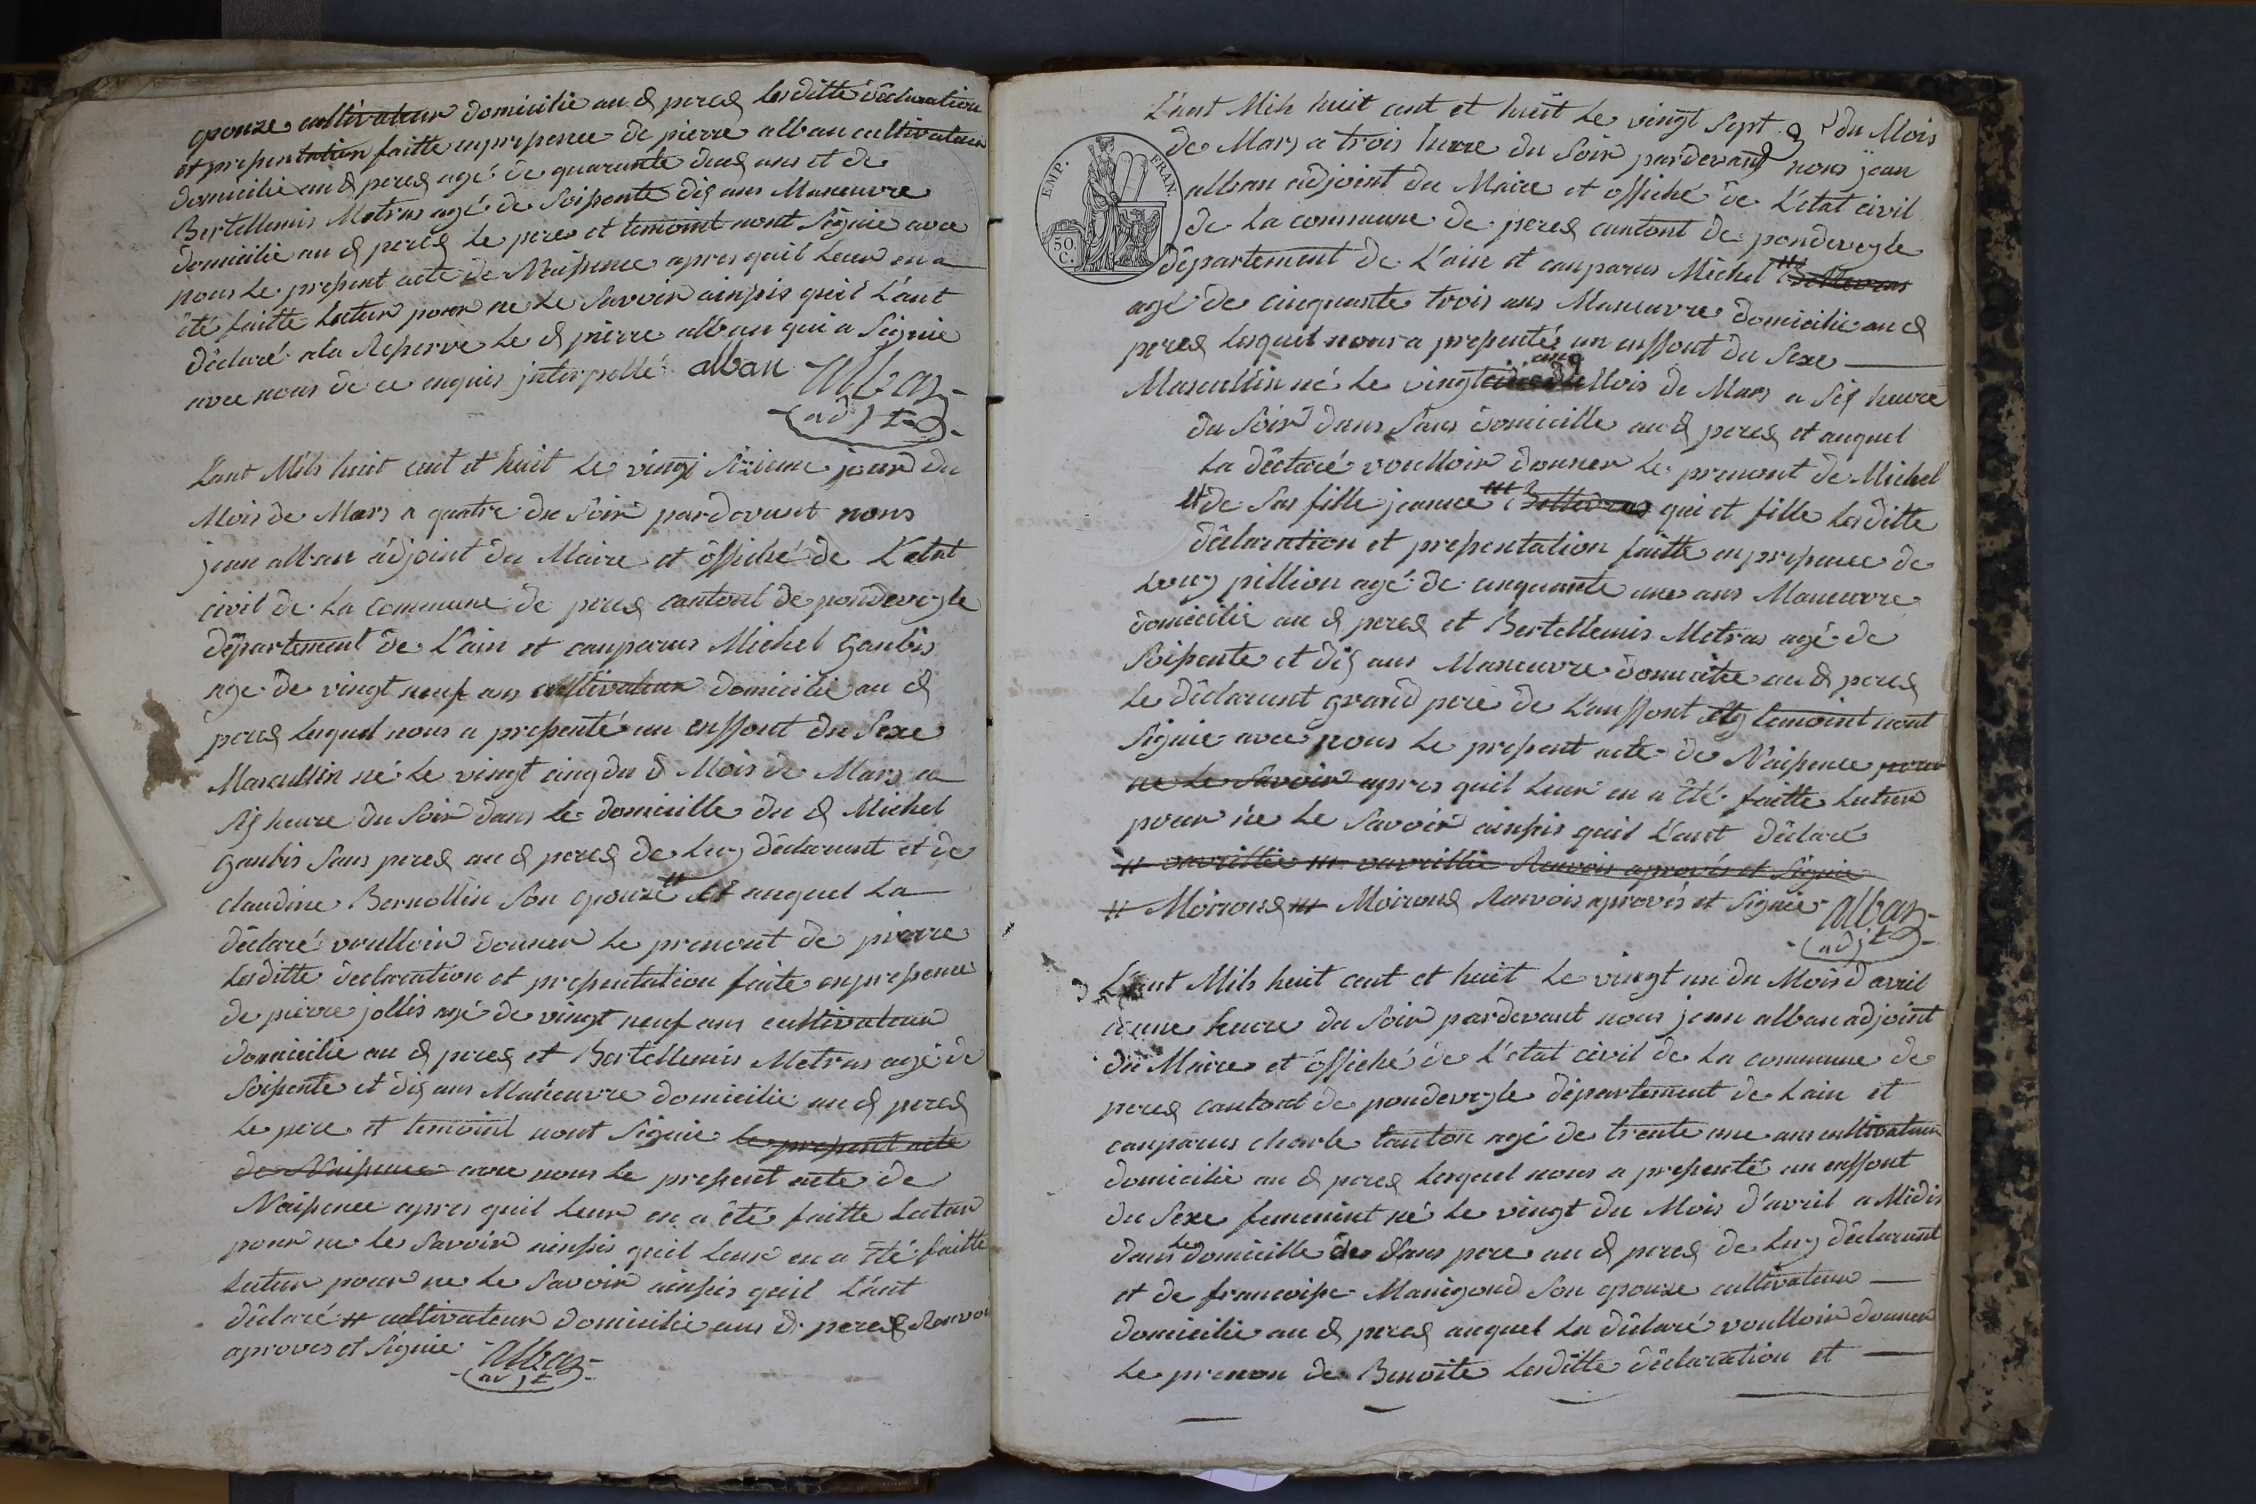 epouze cultivateur domicilié au d perex lesditte déclaration
et presentation faitte en presence de pierre alban cultivateur
domicilié au d perex agé de quarante deux ans et de
Bertellemis Metras agé de Soisente dix ans Maneuvre
domicilié au d perex le pere et temoint nont Signie avec
nous le present acte de Naisence apres quil Leur en a
été faitte Lutur pour ne le Savoir ainssis quil L'ant
déclaré ala Reserve le d pierre alban qui a Signie
avec nous de ce enquis jnterpellé alban Alban
adjt
L'ant Mils huit cent et huit le vingt Sizieme jour du
Mois de Mars a quatre du Soir pardevant nous
jean alban adjoint du Maire et offiché de L'etat
civil de La commune de perex cantont de pondevesle
département de L'ain et canparus Michel Gaubis
age de vingt neuf ans cultivateur domicilié au d
perex lequel nous a presenté un enffont du Sexe
Mascullin né le vingt cinq du d Mois de Mars a
Six heure du Soir dans le domicille du d Michel
Gaubis Sans perex au d perex de Luy déclarant et de
claudine Bernollin Son epouze # et auquel La
déclaré voulloir donner le prenont de pierre
lesditte declaration et presentation faite en presence
de pierre jollis agé de vingt neuf ans cultivateur
domicilié au d perex et Bertellemis Metras agé de
Soisente et dix ans Maneuvre domicilié au d perex
le pere et temoint nont Signie le present acte
de Naisence avec nous le present acte de
Naisence apres quil Leur en a été faitte Lutur
pour ne le Savoir ainssis quil Leur en a été faitte
Lutur pour ne le Savoir ainssis quil L'ant
déclaré # cultivateur domicilié aus d perex Renvoi
aproves et Signie Alban
adjt
EMP. FRAN.
50. C.
L'ant Mils huit cent et huit le vingt Sept du Mois
de Mars a trois heure du Soir pardevant nous jean
alban adjoint du Maire et offiché de L'etat civil
de La commune de perex cantont de pondevesle
département de L'ain et canparus Michel ###
agé de cinquante trois ans Maneuvre domicilié au d
perex lesquel nous a presenté un enffont du Sexe
Mascullin né le vingt cinq Mois de Mars a Six heure
du Soir dans Sans domicille au d perex et auquel
La déclaré voulloir donner le prenont de Michel
# de Sas fille jeanne ### qui et fille lesditte
déclaration et presentation faitte en presence de
Louy pillion agé de cinquante une ans Maneuvre
domicilié au d perex et Bertellemis Metras agé de
Soisente et dix ans Maneuvre domicilié au d perex
le déclarant grand pere de L'anffont et temoint nont
Signie avec nous le present acte de Naisence pour
ne le Savoir apres quil Leur en a été faitte Lutur
pour ne le Savoir ainssis quil L'ant déclaré
# vavrillie ### vavrillie Renvois aprovés et Signie
# Moiroux ### Moiroux Renvois aprovés et Signie Alban
adjt
L'ant Mils huit cent et huit le vingt un du Mois d avril
a une heure du Soir pardevant nous jean alban adjoint
du Maire et offiché de L'etat civil de La commune de
perex cantont de pondevesle département de Lain et
canparus charle tanton agé de trente une ans cultivateur
domicilié au d perex lesquel nous a presenté un enffont
du Sexe femenint né le vingt du Mois d'avril a Midis
dans le domicille de Sans pere au d perex de Luy déclarant
et de francoise Manigond Son epouze cultivateur
domicilié au d perex auquel La déclaré voulloir donner
le prenon de Benoite lesditte déclaration et